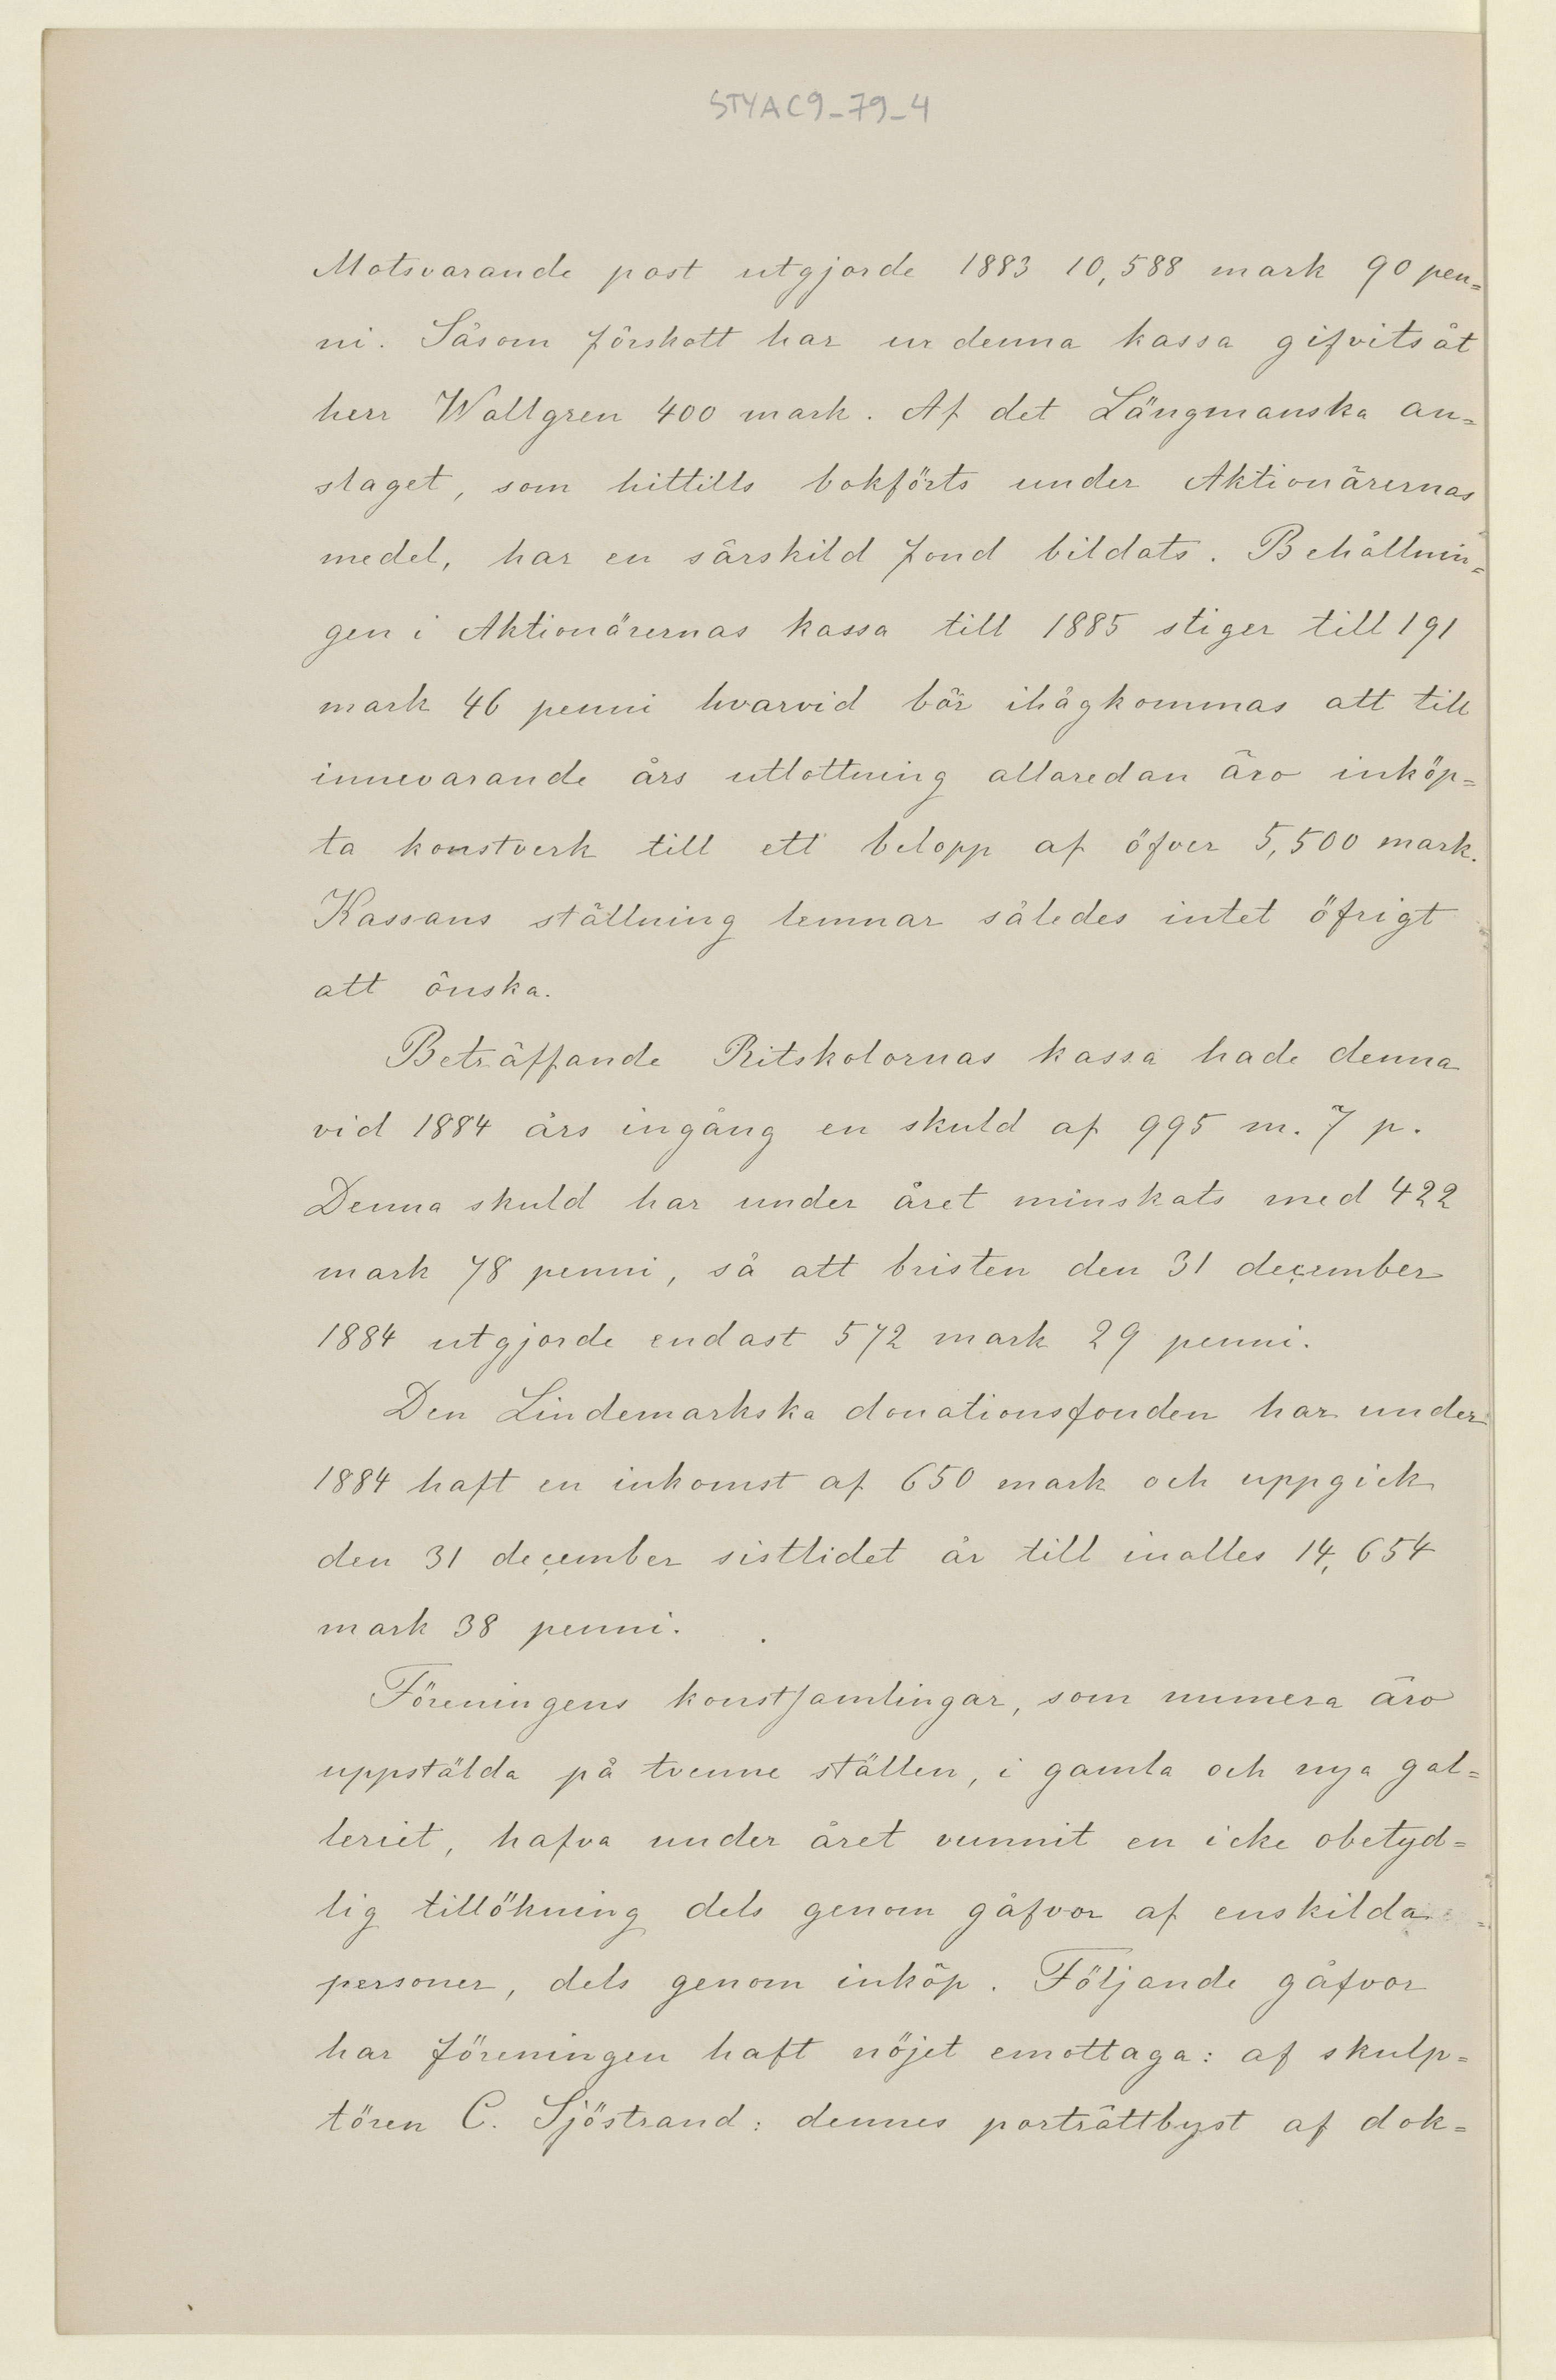 STYAC9_79_4
Motsvarande post utgjorde 1883 10,588 mark 90 pen=
ni. Såsom förskott har ur denna kassa gifvits åt
herr Wallgren 400 mark. Af det Längmanska an=
slaget, som hittills bokförts under Aktionärernas
medel, har en särskild fond bildats. Behållnin=
gen i Aktionärernas kassa till 1885 stiger till 191
mark 46 penni hvarvid bör ihågkommas att till
innevarande års utlottning allaredan äro inköp=
ta konstverk till ett belopp af öfver 5,500 mark.
Kassans ställning lemnar således intet öfrigt
att önska.
Beträffande Ritskolornas kassa hade denna
vid 1884 års ingång en skuld af 995 m. 7 p.
Denna skuld har under året minskats med 422
mark 78 penni, så att bristen den 31 december
1884 utgjorde endast 572 mark 29 penni.
Den Lindemarkska donationsfonden har under
1884 haft en inkomst af 650 mark och uppgick
den 31 december sistlidet år till inalles 14,654
mark 38 penni.
Föreningens konstsamlingar, som numera äro
uppstälda på tvenne ställen, i gamla och nya gal=
leriet, hafva under året vunnit en icke obetyd=
lig tillökning dels genom gåfvor af enskilda
personer, dels genom inköp. Följande gåfvor
har föreningen haft nöjet emottaga: af skulp=
tören C. Sjöstrand: dennes porträttbyst af dok=